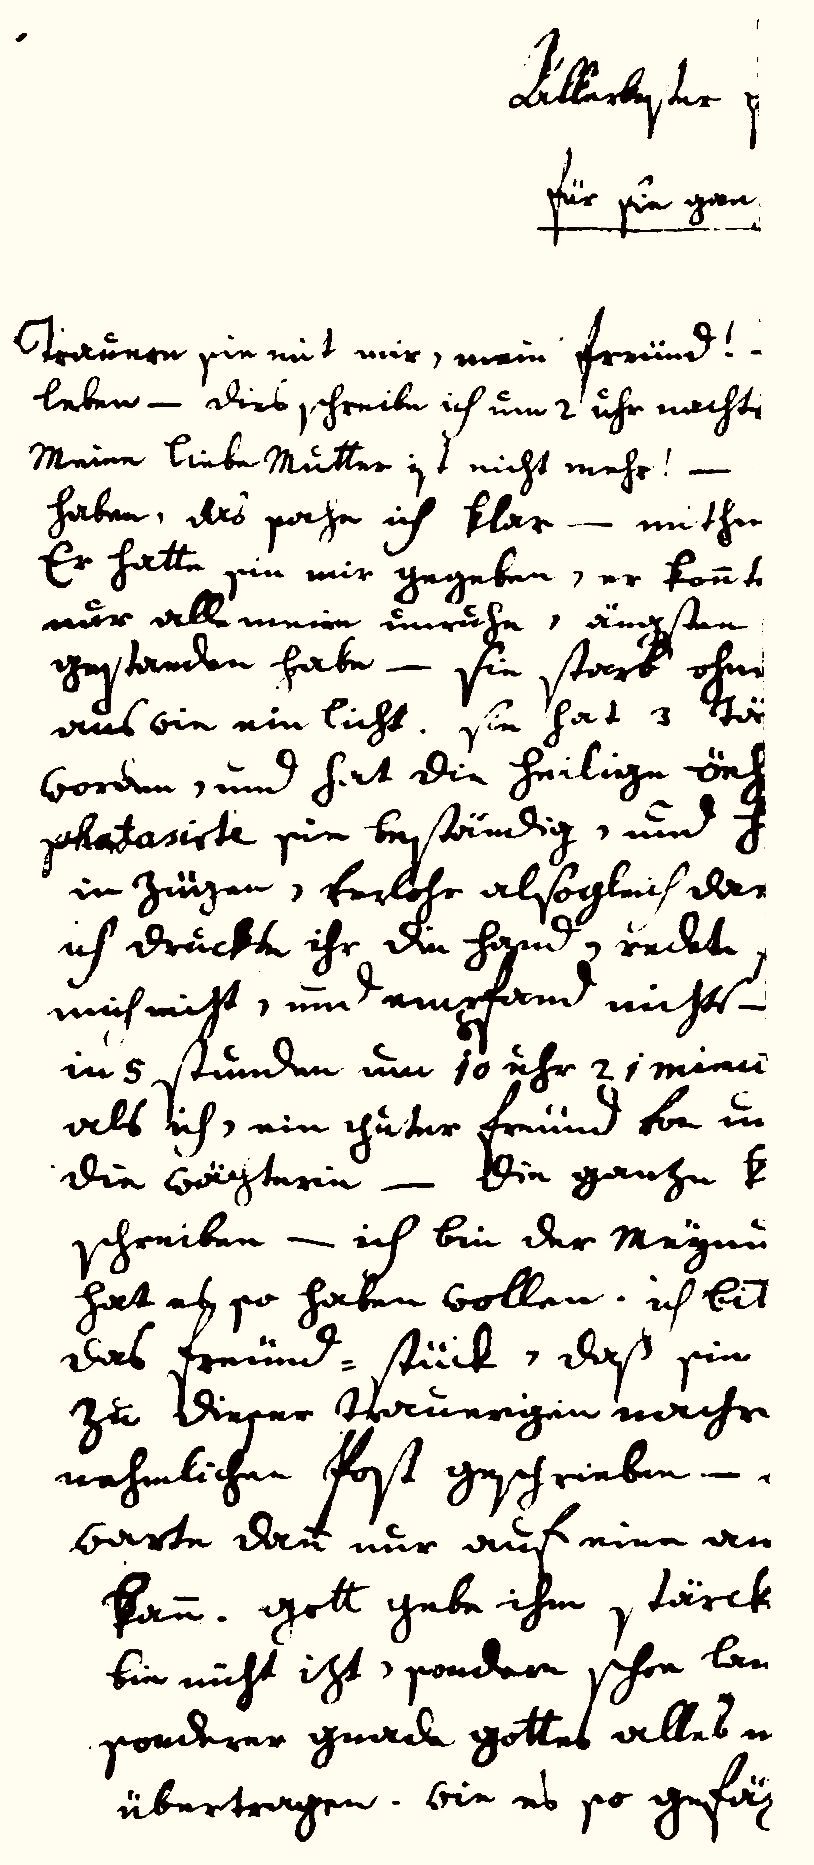 Allerbester
für sie gan
Trauern sie mit mir, mein freünd! -
leben — dies schreibe ich um 2 uhr nachts
Meine liebe Mutter ist nicht mehr! —
haben, das sahe ich klar — mithin
Er hatte sie mir gegeben, er konnte
nur alle meine unruhe, ängsten
gestanden habe — sie starb ohne
aus wie ein licht. sie hat 3 Tä
worden, und hat die heilige öeh
phatasirte sie beständig, und
in Zügen, verlohr alsogleich
ich druckte ihr die hand, redete
mich nicht, und empfand nichts —
in 5 stunden um 10 uhr 21 minu
als ich, ein guter freünd von un
die wächterin — die ganze k
schreiben — ich bin der Meynu
hat es so haben wollen. ich bit
das freünd=stück, daß sie
zu dieser trauerigen nachr
nehmlichen Post geschrieben —
warte dan̄ nur auf eine an
kan̄. gott gebe ihm stärck
bin nicht izt, sondern schon lan
sonderer gnade gottes alles
übertragen. wie es so gefä